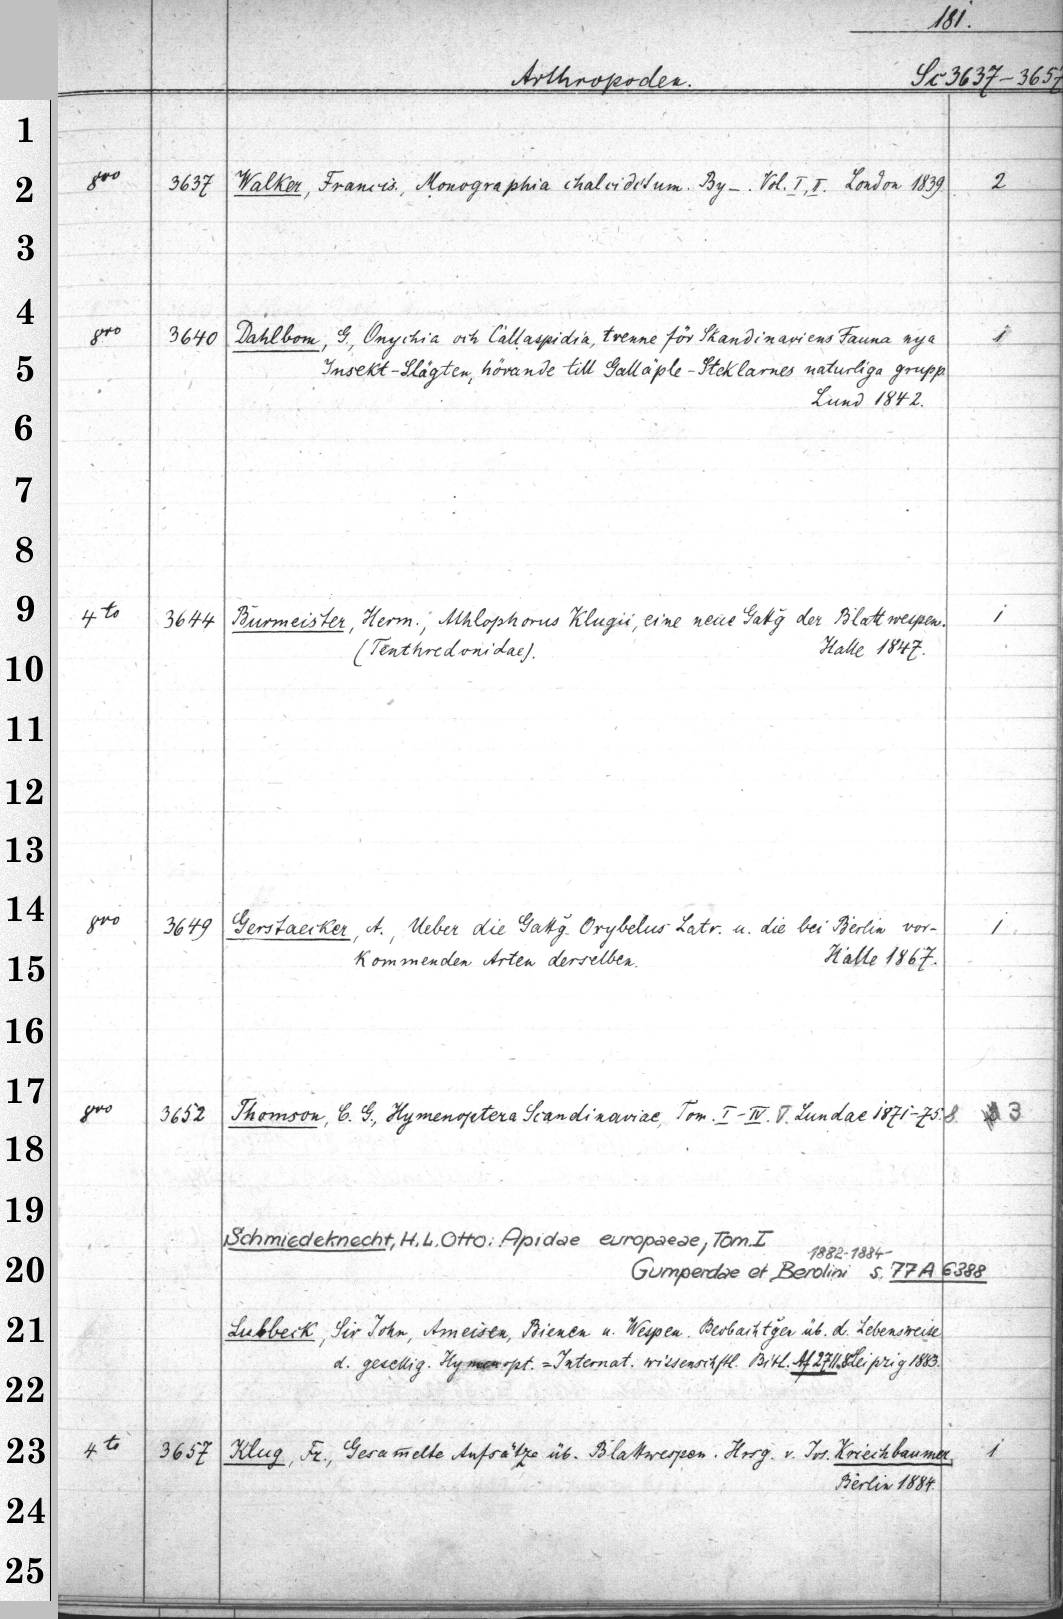 181.
Arthropoden. Sc 3637-3657
1
2 8vo 3637 Walker, Francis., Monographia chalciditum. By-. Vol. I, II. London 1839 2
3
4 8vo 3640 Dahlbom, G., Onychia och Callaspidia, tvenne för Skandinaviens Fauna nya 1
5 Insekt-Slägten, hörande till Galläple-Steklarnes naturliga grupp
Lund 1842.
6
7
8
9 4to 3644 Burmeister, Herm., Athlophorus Klugii, eine neue Gattg der Blattwespen. 1
10 (Tenthredonidae). Halle 1847.
11
12
13
14 8vo 3649 Gerstaecker, A., Ueber die Gattg. Oxybelus Latr. u. die bei Berlin vor- 1
15 kommenden Arten derselben. Halle 1867.
16
17 8vo 3652 Thomson, C. G., Hymenoptera Scandinaviae, Tom. I-IV. V. Lundae 1871-75. 8 3
18
19 Schmiedeknecht, H. L. Otto: Apidae europaeae, Tom. I
1882-1884
20 Gumperdae et Berolini s. 77 A 6388
21 Lubbock, Sir John, Ameisen, Bienen u. Wespen. Beobachtgen üb. d. Lebensweise
d. gesellig. Hymenopt. = Internat. wissenschftl. Bibl. Af 2711.8 Leipzig 1883.
22
23 4to 3657 Klug, Fr., Gesam̅elte Aufsätze üb. Blattwespen. Hrsg. v. Jos. Kriechbaumer, 1
Berlin 1884.
24
25